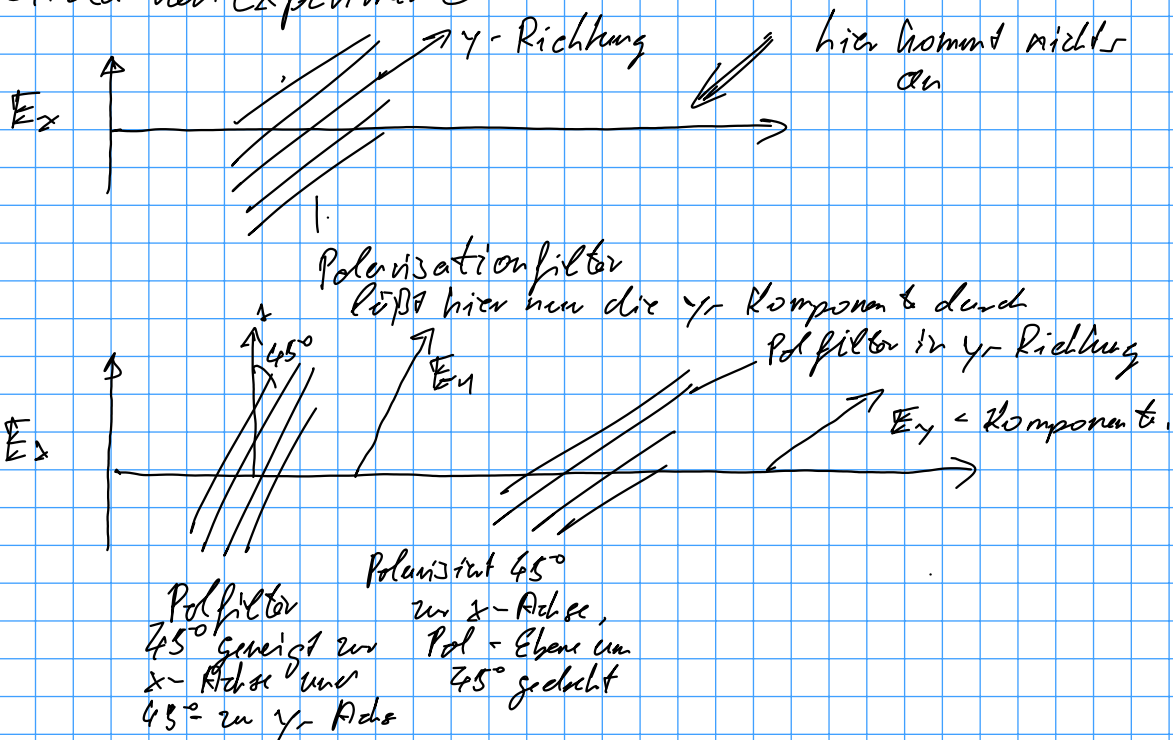 y-Richtung
hier kommt nichts
an
Ex
Polarisationfilter
läßt hier nur die y- Komponent durch
x
45°
Polfilter in y- Richtung
Ey - Komponent.
Polarisiert 45°
zur x-Achse,
Pol-Ebene um
45° gedreht
Polfilter
45° geneigt zur
x-Achse und
45° zu y- Achs